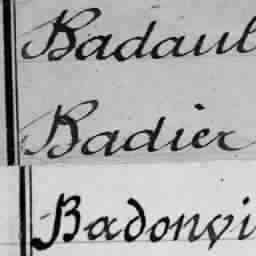 Badaul
Badier
Badonvi